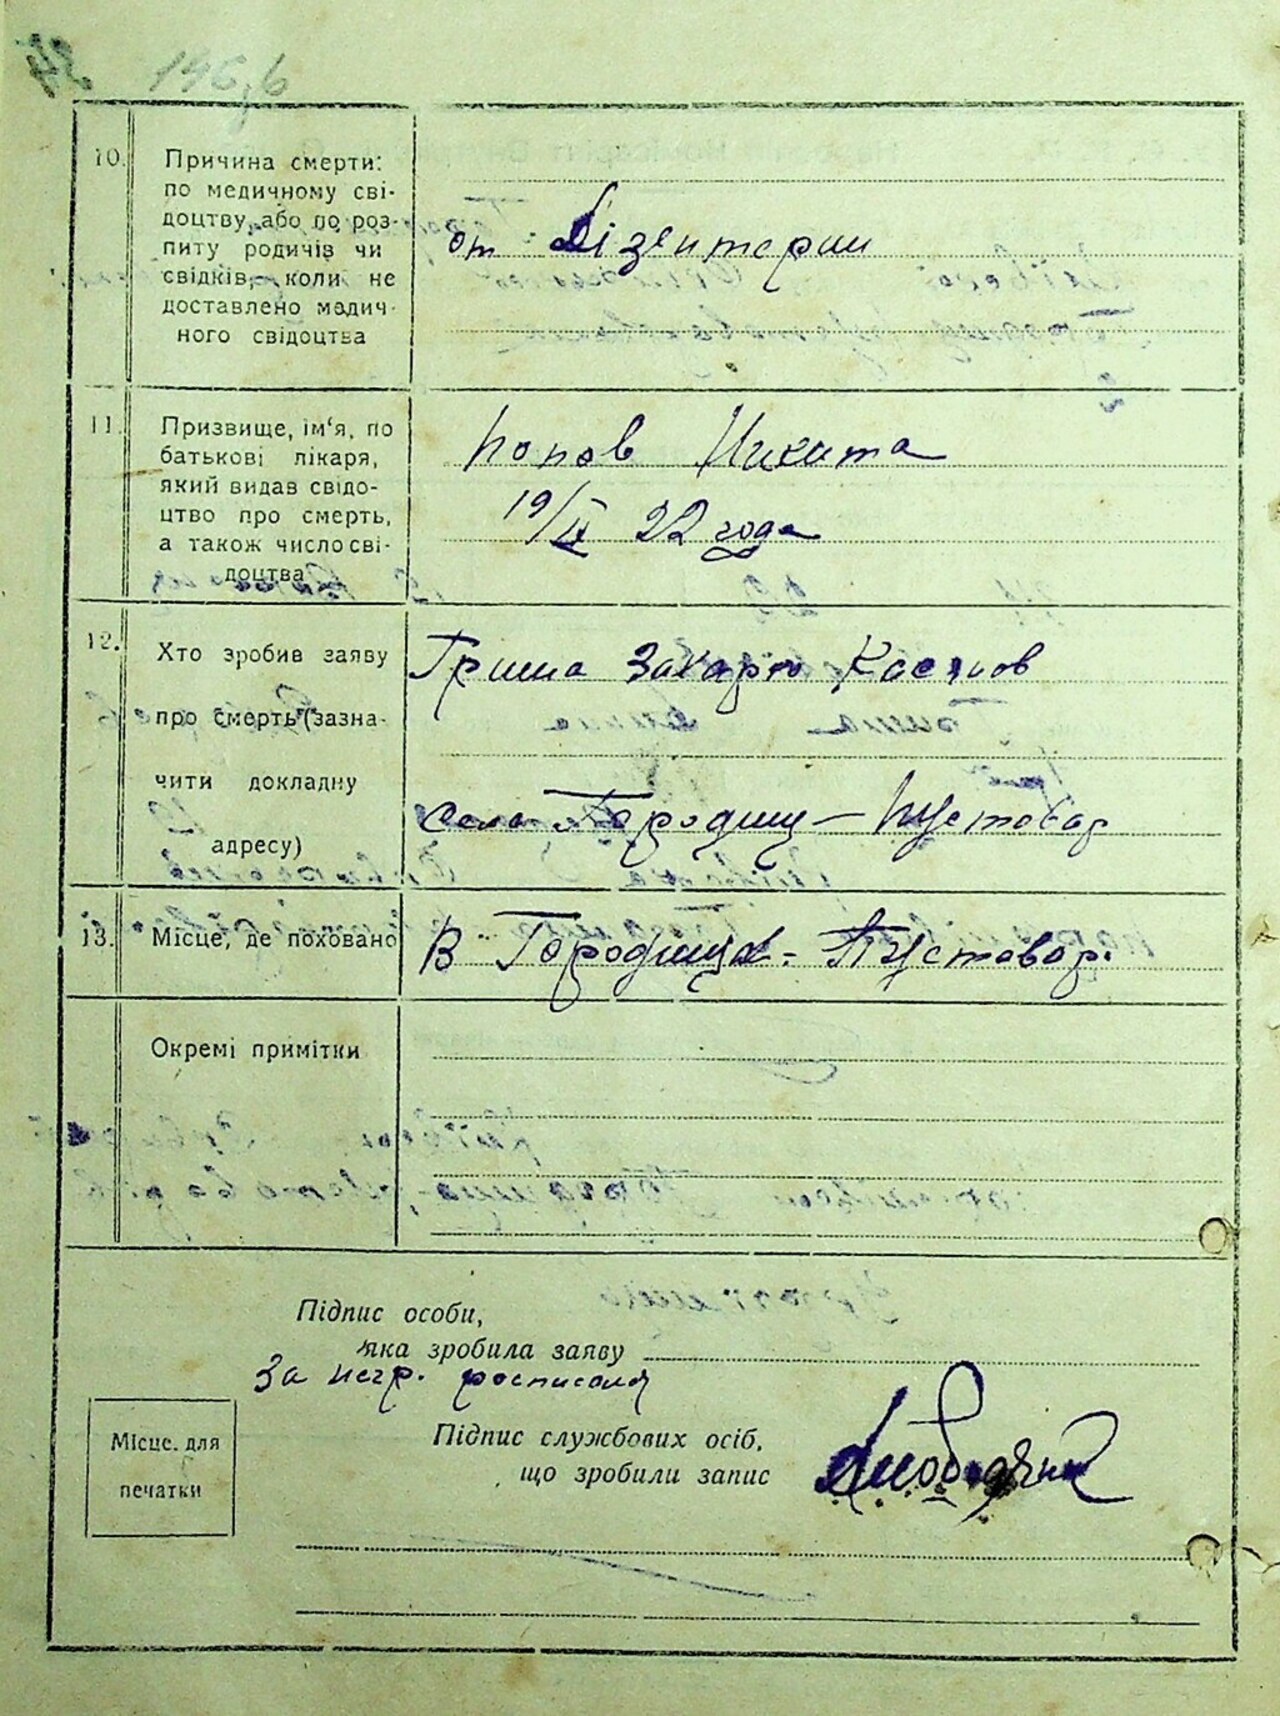 145,6
10. Причина смерти:
по медичному сві-
доцтву, або по роз-
питу родичів чи
свідків, коли не
доставлено медич-
ного свідоцтва
от Дізентерии
11. Призвище, ім'я, по
батькові лікаря,
який видав свідо-
цтво про смерть,
а також число сві-
доцтва
Попов Никита
19/IV 22 года
12. Хто зробив заяву
про смерть (зазна-
чити докладну
адресу)
Гриша Захарю Касянов
Село Городищ-Пустовар
13. Місце, де поховано
В Городище-Пустовар.
Окремі примітки
Підпис особи,
яка зробила заяву
За негр. росписался
Місце для
печатки
Підпис службових осіб,
що зробили запис